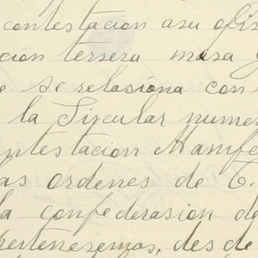 contestacion asu ofis
cion tersera mesa
e se relasiona con
la Sircular nume
ntestacion Manife
as ordenes de
la confederasion de
pertenesemos, desde